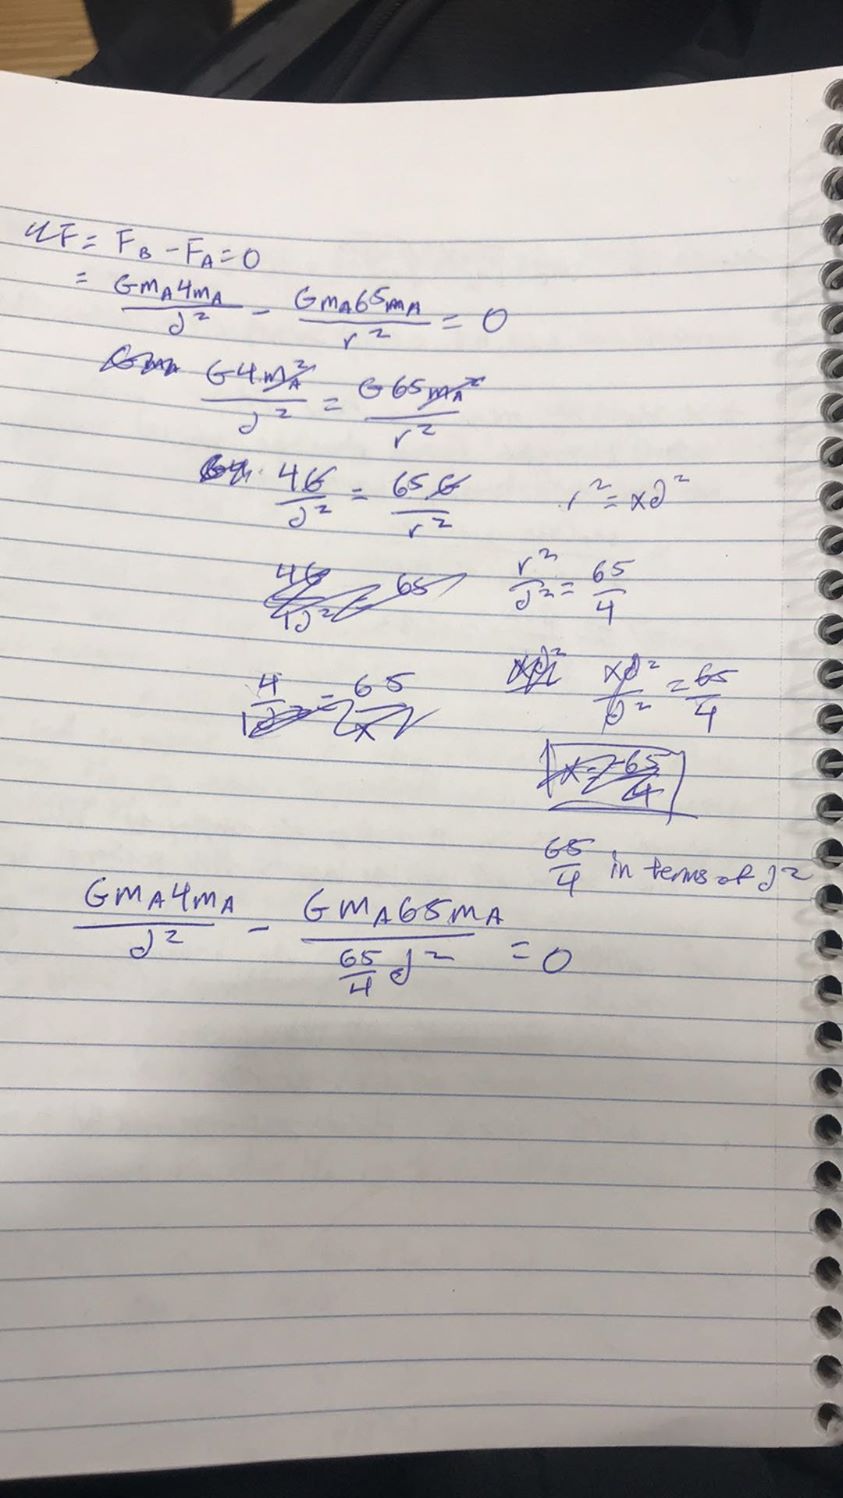 ΣF = F_B - F_A = 0
= Gm_A4m_A/d² - Gm_A65m_A/r² = 0
Gm_A G4m_A²/d² = G65m_A²/r²
4G/d² = 65G/r² r² = xd²
4G/d² = 65 r²/d² = 65/4
4/d² = 65/x xd² xd²/d² = 65/4
x = 65/4
65/4 in terms of d²
Gm_A4m_A/d² - Gm_A65m_A/(65/4 d²) = 0